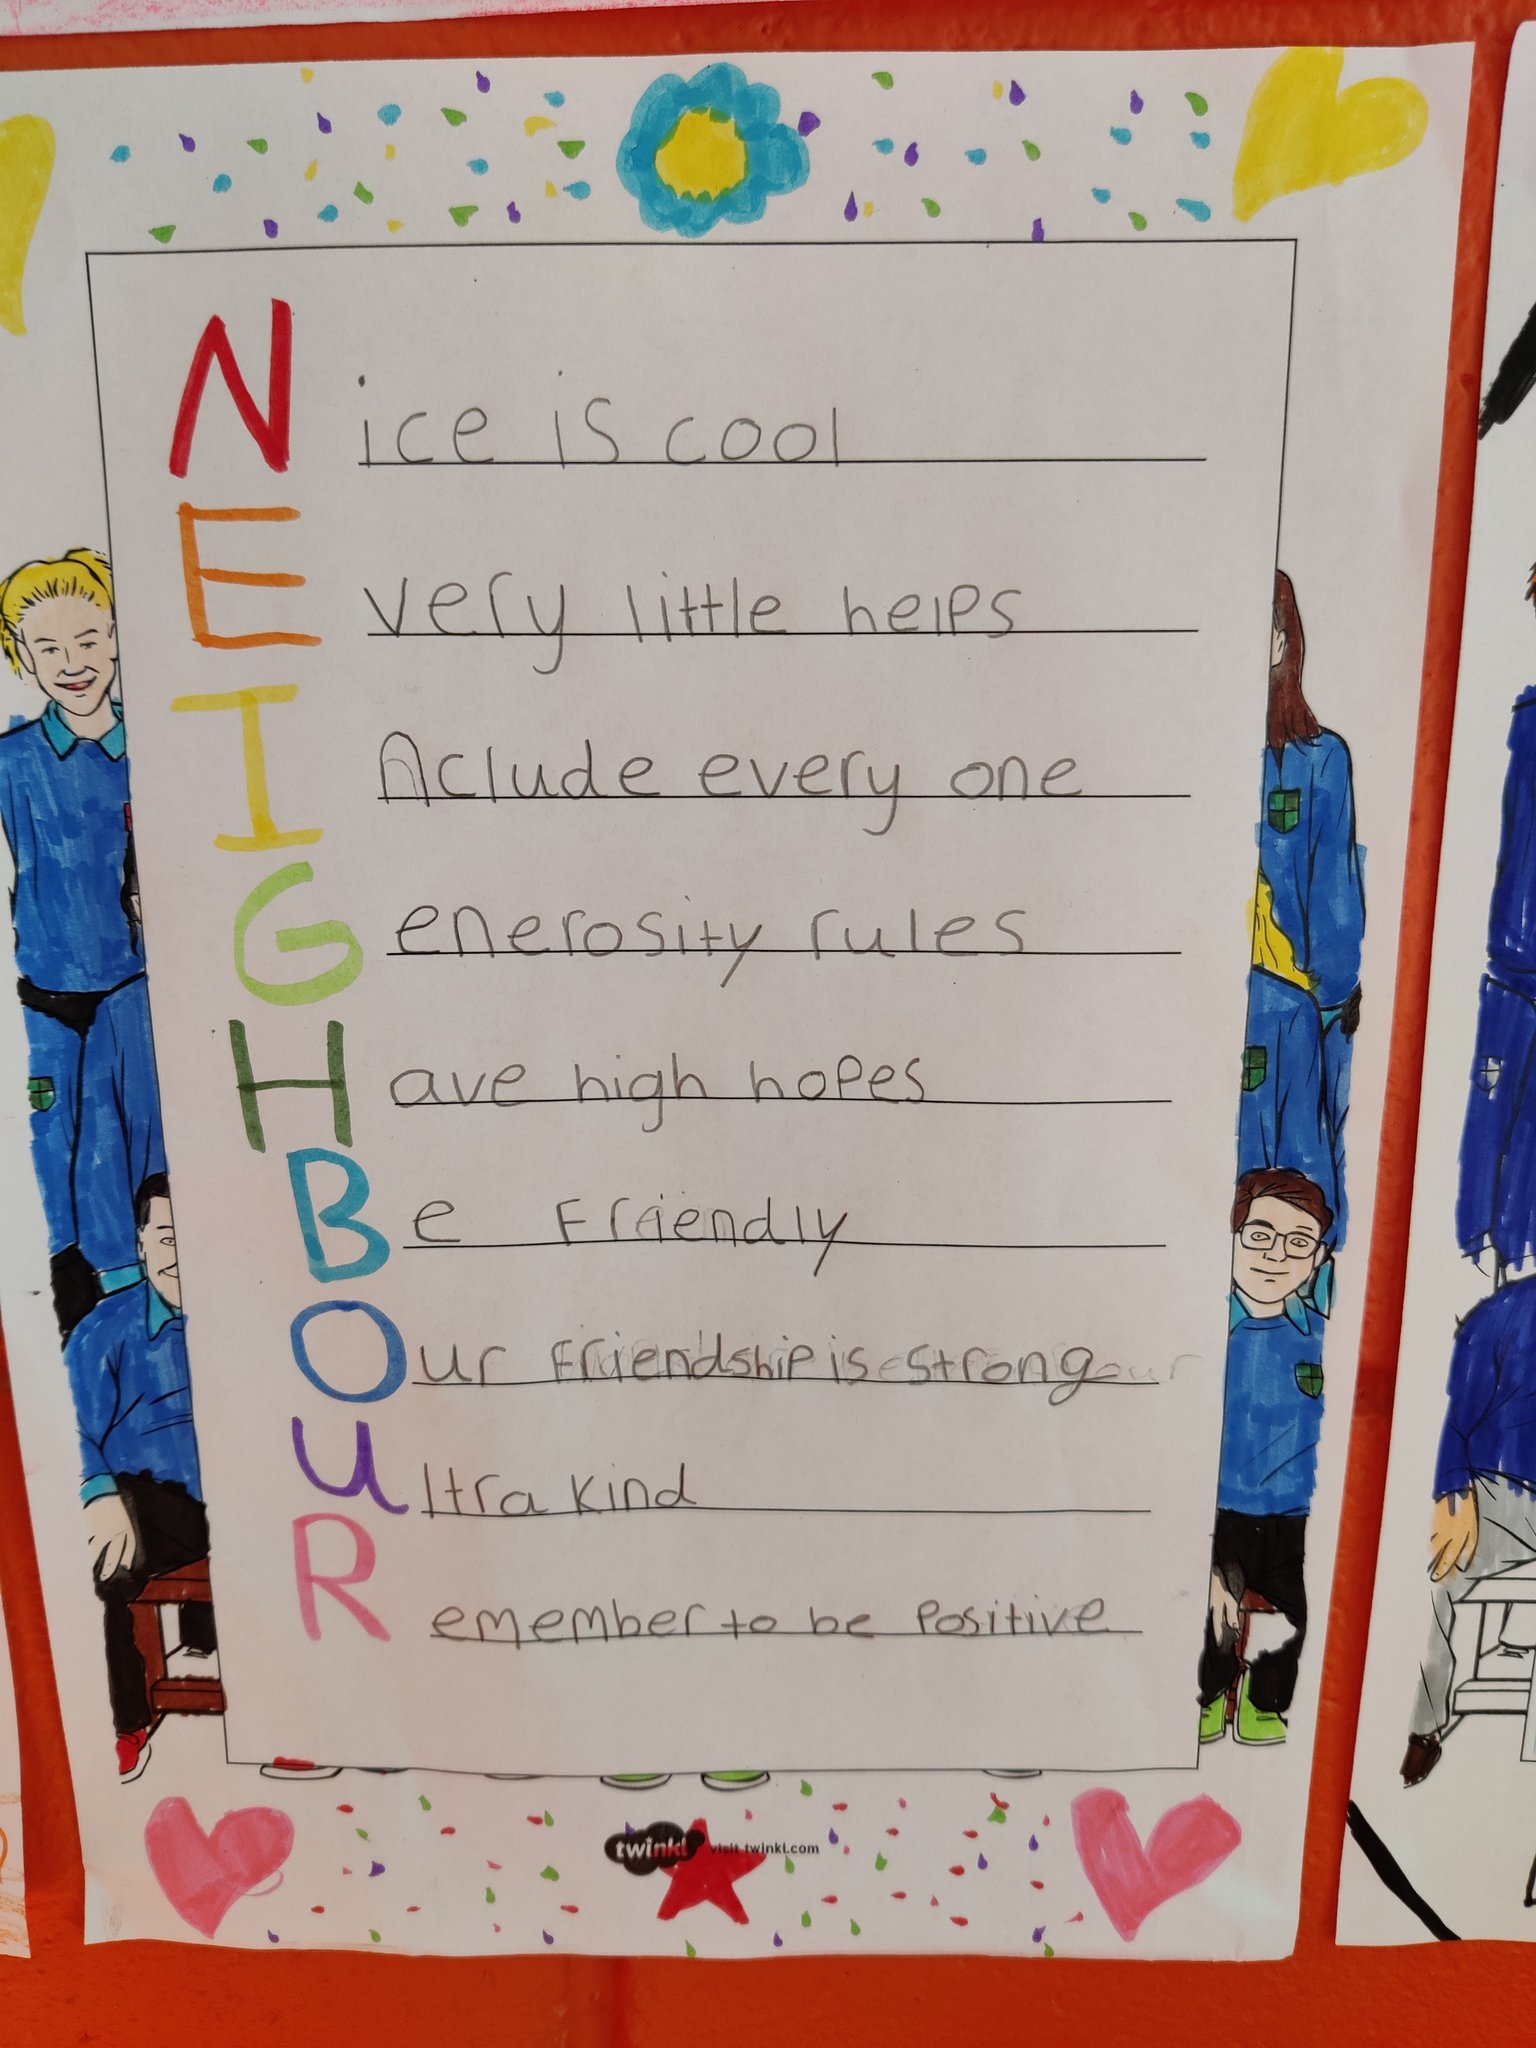 Nice is cool
Every little helps
Include every one
Generosity rules
Have high hopes
Be Friendly
Our Friendship is strong
Ultra kind
Remember to be Positive
twinkl visit twinkl.com